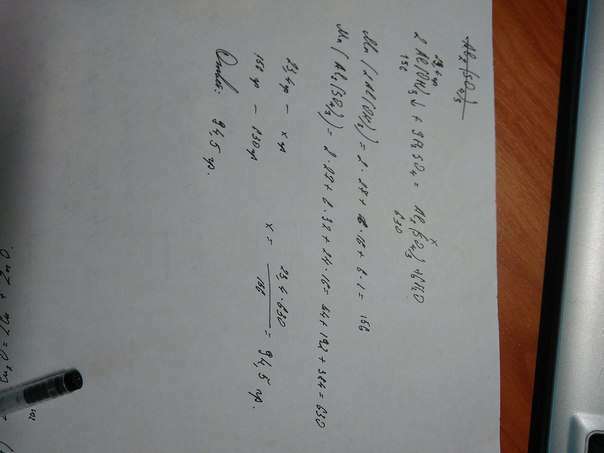 Al₂(SO₄)₃
23,4 гр x
2 Al(OH)₃↓ + 3H₂SO₄ = Al₂(SO₄)₃ + 6H₂O
156 630
Mr (2Al(OH)₃) = 2·27 + 6·16 + 6·1 = 156
Mr (Al₂(SO₄)₃) = 2·27 + 6·32 + 24·16 = 54 + 192 + 384 = 630
23,4 гр – x гр
156 гр – 630 гр
x = 23,4·630 / 156 = 94,5 гр.
Ответ: 94,5 гр.